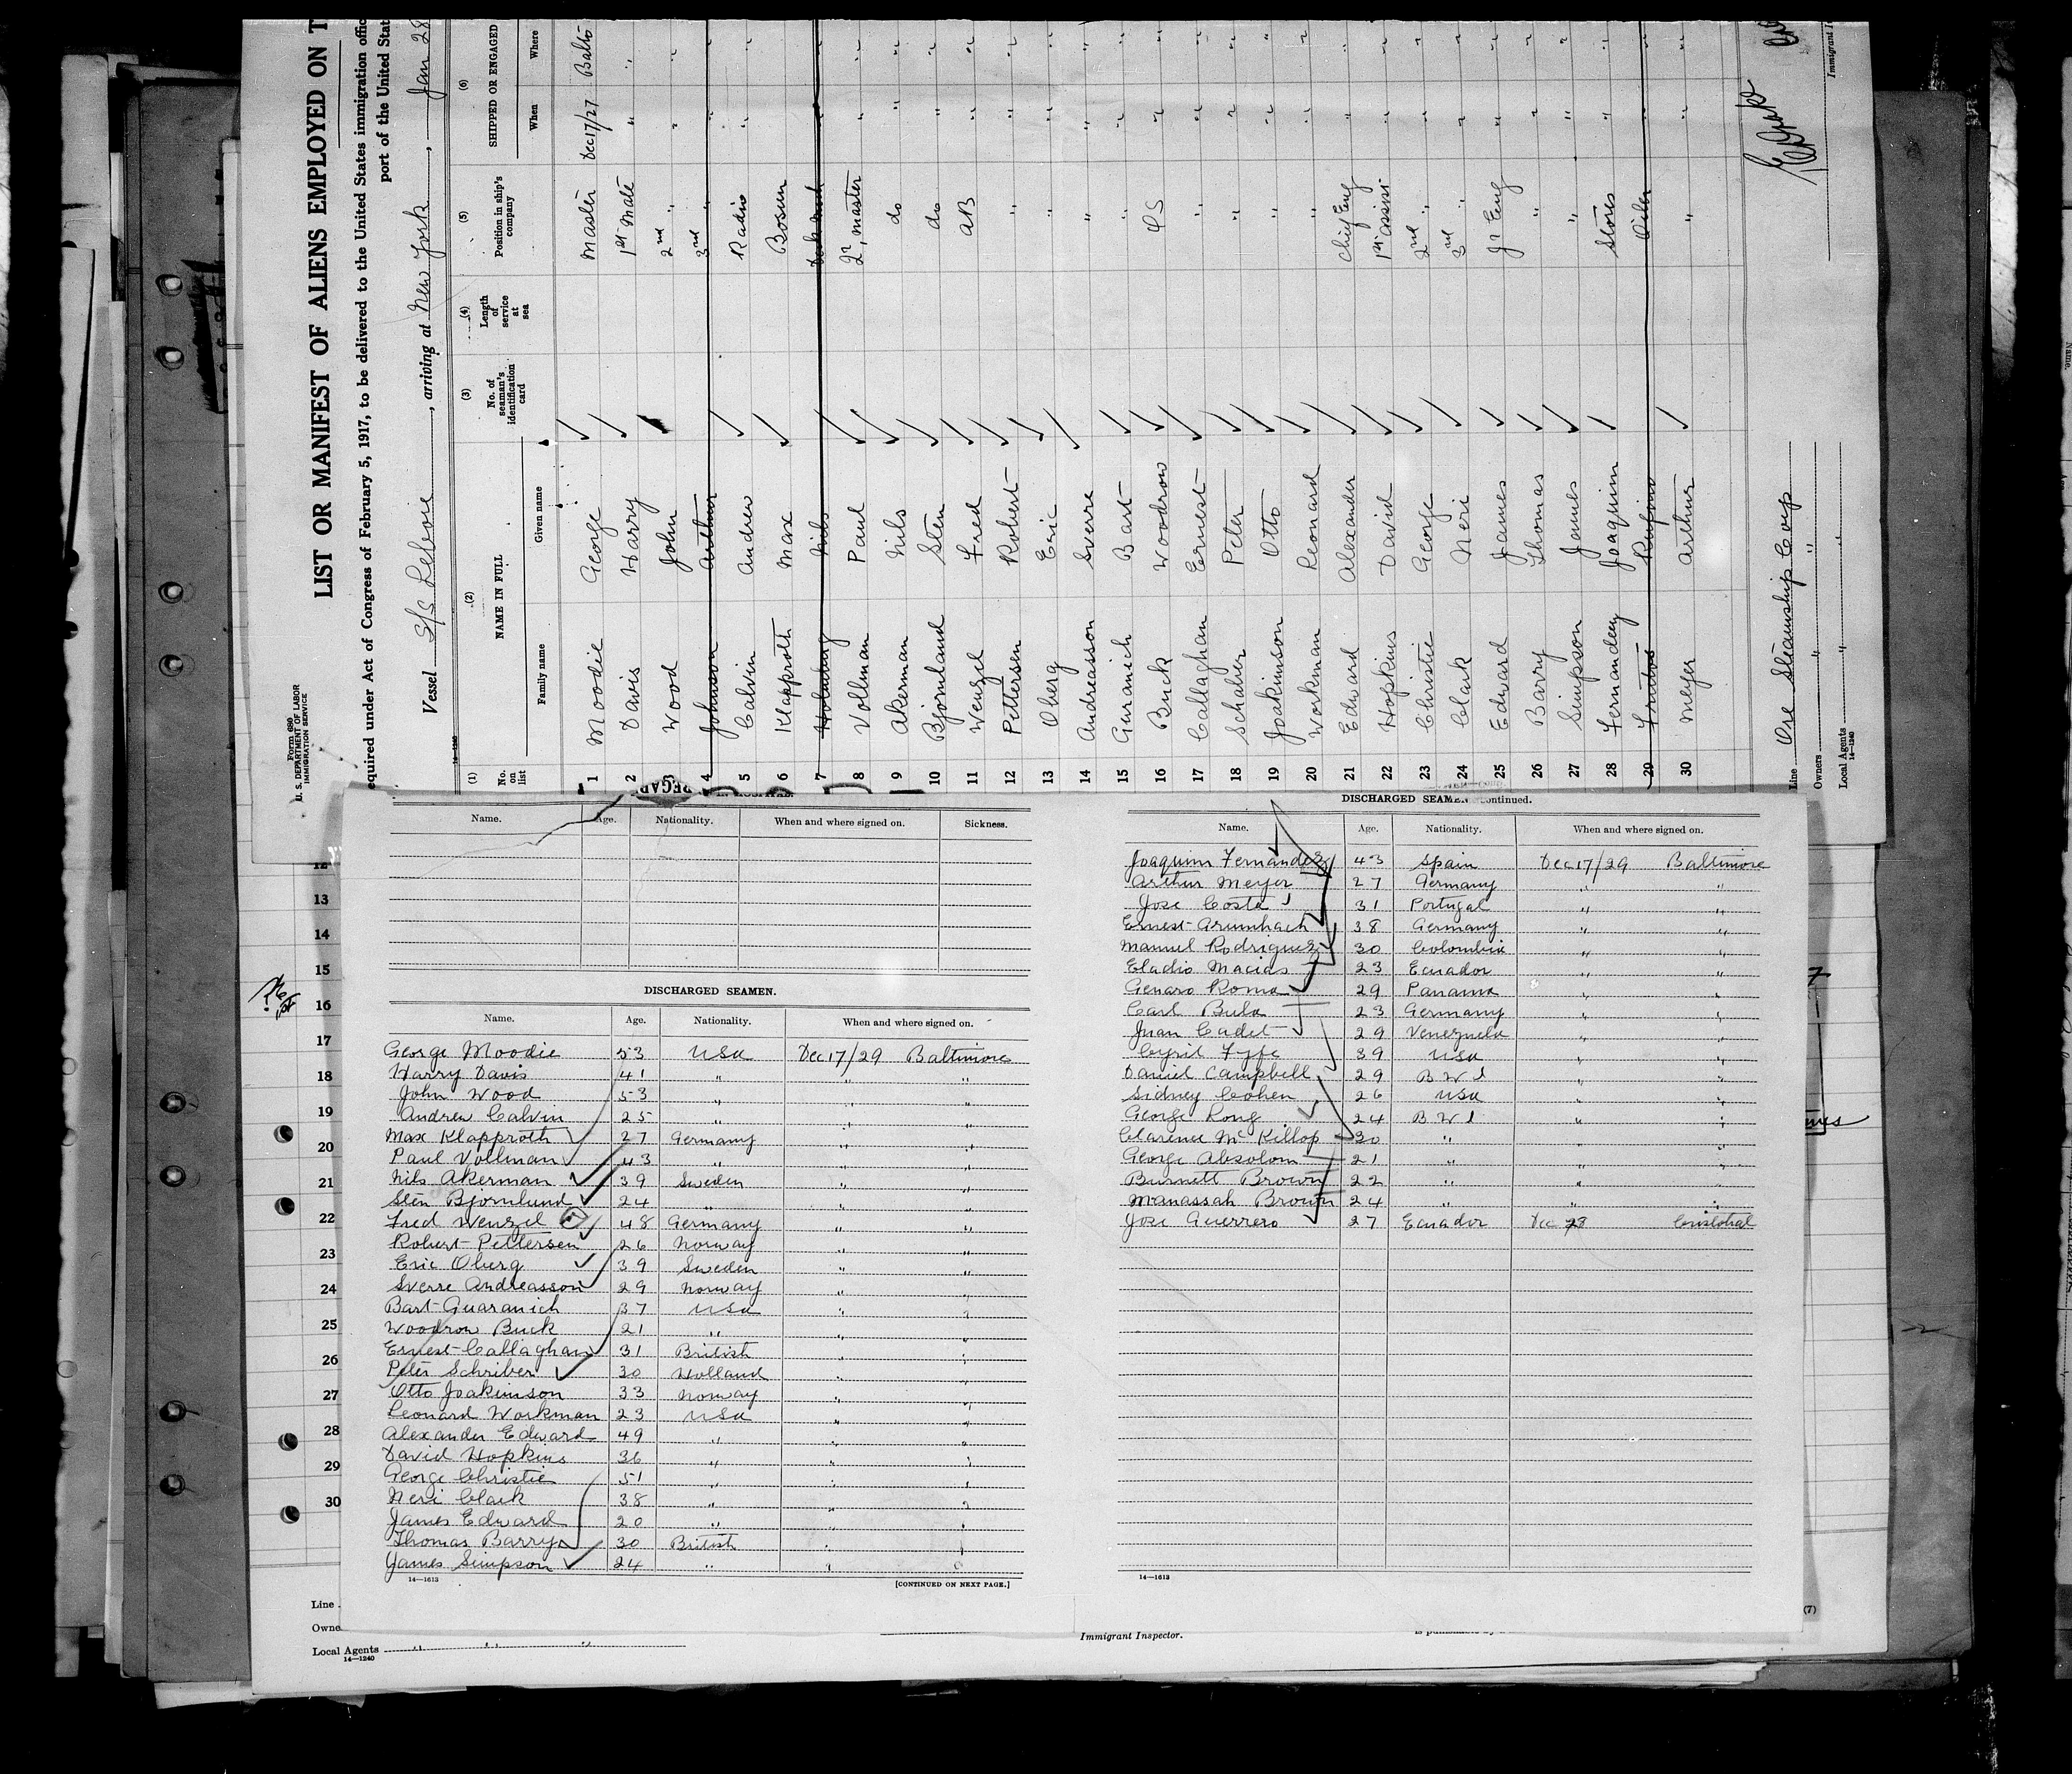 Form 680
U. S. DEPARTMENT OF LABOR
IMMIGRATION SERVICE
LIST OR MANIFEST OF ALIENS EMPLOYED ON T
equired under Act of Congress of February 5, 1917, to be delivered to the United States immigration offic
port of the United Stat
Vessel S/S Lebore, arriving at New York, Jan 28
14—1240
(1) (2) (3) (4) (5) (6)
No. on list NAME IN FULL No. of seaman's identification card Length of service at sea Position in ship's company SHIPPED OR ENGAGED
Family name Given name When Where
1 Moodie George Master Dec 17/27 Balto
2 Davis Harry 1st Mate " "
3 Wood John 2nd " " "
4 Johnson Arthur 3rd " " "
5 Calvin Andrew Radio " "
6 Klapproth Max Bosun " "
7 Holmberg Nils " "
8 Vollman Paul Qr. master " "
9 Akerman Nils do " "
10 Bjornland Sten do " "
11 Wenzel Fred AB " "
12 Pettersen Robert " " "
13 Oberg Eric " " "
14 Andreasson Sverre " " "
15 Guranich Bart " " "
16 Buck Woodrow OS " "
17 Callaghan Ernest " " "
18 Schriber Peter " " "
19 Joakimson Otto " " "
20 Workman Leonard " " "
21 Edward Alexander Chief Eng " "
22 Hopkins David 1st assist " "
23 Christie George 2nd " " "
24 Clark Neri 3rd " " "
25 Edward James Jr Eng " "
26 Barry Thomas " " "
27 Simpson James " " "
28 Fernandez Joaquim Stores " "
29 Frutos Rufino Oiler " "
30 Meyer Arthur " " "
Line Ore Steamship Corp
Owners " "
Local Agents " "
14—1240
Immigrant I
Name. Age. Nationality. When and where signed on. Sickness.
DISCHARGED SEAMEN.
Name. Age. Nationality. When and where signed on.
George Moodie 53 USA Dec 17/29 Baltimore
Harry Davis 41 " " "
John Wood 53 " " "
Andrew Calvin 25 " " "
Max Klapproth 27 Germany " "
Paul Vollman 43 " " "
Nils Akerman 39 Sweden " "
Sten Bjornlund 24 " " "
Fred Wenzel 48 Germany " "
Robert Pettersen 26 Norway " "
Eric Oberg 39 Sweden " "
Sverre Andreasson 29 Norway " "
Bart Guaranich 37 USA " "
Woodrow Buck 21 " " "
Ernest Callaghan 31 British " "
Peter Schriber 30 Holland " "
Otto Joakimson 33 Norway " "
Leonard Workman 23 USA " "
Alexander Edward 49 " " "
David Hopkins 36 " " "
George Christie 51 " " "
Neri Clark 38 " " "
James Edward 20 " " "
Thomas Barry 30 British " "
James Simpson 24 " " "
14—1613
[CONTINUED ON NEXT PAGE.]
DISCHARGED SEAMEN—Continued.
Name. Age. Nationality. When and where signed on.
Joaquim Fernandez 43 Spain Dec 17/29 Baltimore
Arthur Meyer 27 Germany " "
Jose Costa 31 Portugal " "
Ernest Grumbach 38 Germany " "
Manuel Rodriguez 30 Colombia " "
Eladio Macias 23 Ecuador " "
Genaro Roma 29 Panama " "
Carl Bula 23 Germany " "
Juan Cadet 29 Venezuela " "
Cyril Fyfe 39 USA " "
Daniel Campbell 29 B W I " "
Sidney Cohen 26 USA " "
George Long 24 B W I " "
Clarence McKillop 30 " " "
George Absolom 21 " " "
Burnett Brown 22 " " "
Manassah Brown 24 " " "
Jose Guerrero 27 Ecuador Dec 28 Cristobal
14—1613
12
13
14
15
16
17
18
19
20
21
22
23
24
25
26
27
28
29
30
Line
Owne
Local Agents " " "
14—1240
Immigrant Inspector.
(7)